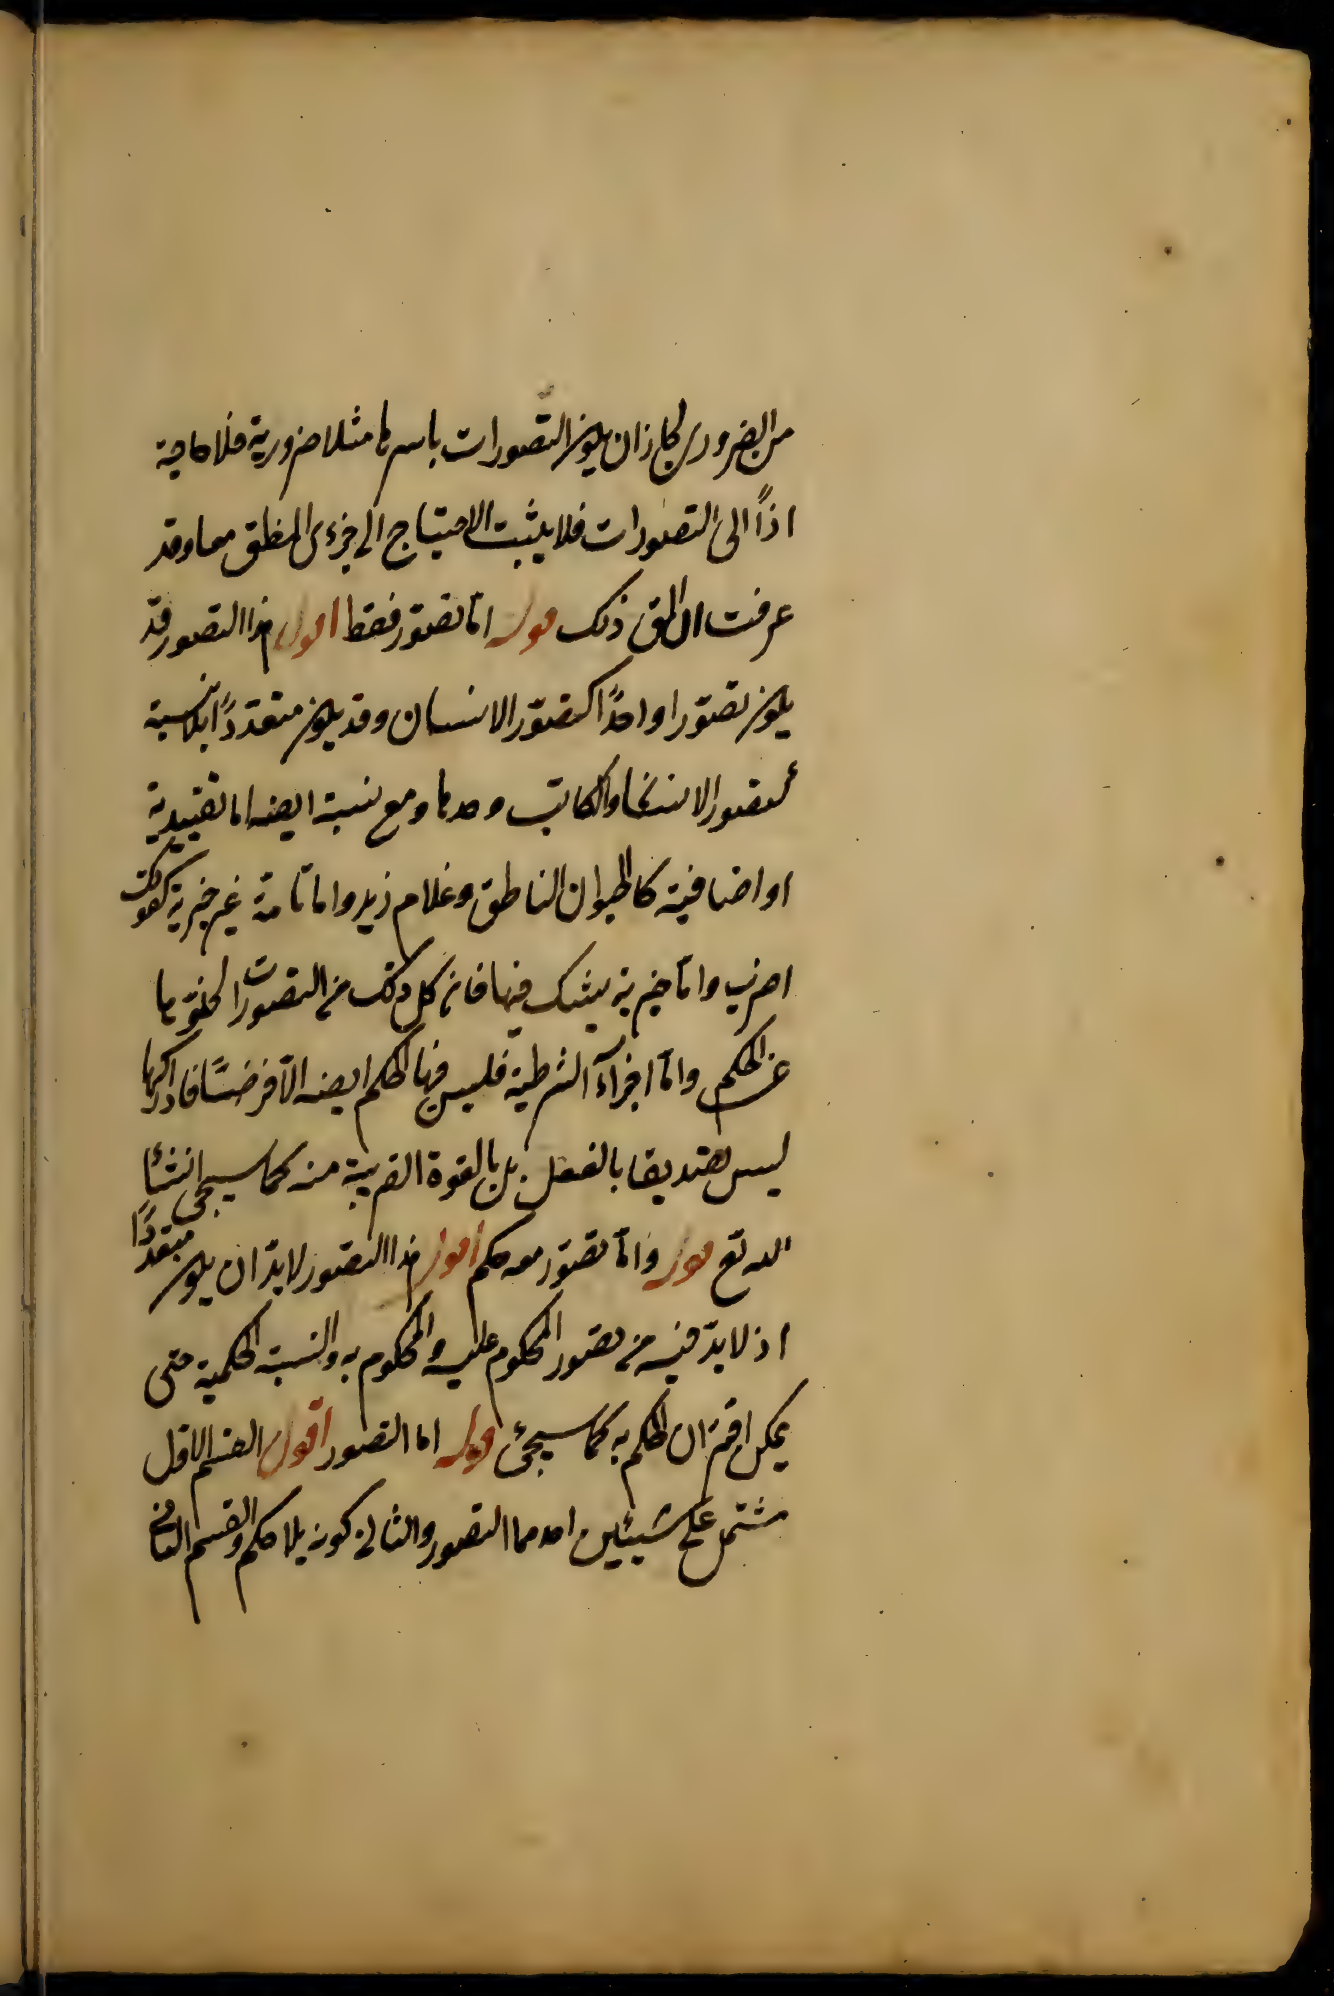 من الضروري لجاز ان يكون التصورات باسرها مثلا ضرورية فلا حاجة
اذاً الى التصورات فلا يثبت الاحتياج الى جزءى المنطق معا وقد
عرفت ان الحق ذلك قوله امّا تصوّر فقط اقول هذا التصور قد
يكون تصوّرا واحدًا كتصوّر الانسان وقد يكون متعدّدًا بلا نسبة
كتصور الانسان والكاتب وحدها ومع نسبة ايضا اما تقييدية
او اضافية كالحيوان الناطق وغلام زيد واما تامّة غير خبرية كقولك
اضرب وامّا خبرية يشك فيها فان كل ذلك من التصورات لخلوّها
عن الحكم وامّا اجزآء الشرطية فليس فيها الحكم ايضا الّا فرضًا فادراكها
ليس تصديقا بالفعل بل بالقوة القريبة منه كما سيجئ انشأ
الله تع قوله وامّا تصوّر معه حكم اقول هذا التصور لا بدّ ان يكون متعدّدًا
اذ لا بدّ فيه من تصور المحكوم عليه والمحكوم به والنسبة الحكمية حتى
يمكن اقتران الحكم به كما سيجئ قوله اما التصور اقول القسم الاول
مشتمل على شيئين احدهما التصور والثاني كونه بلا حكم والقسم الثاني